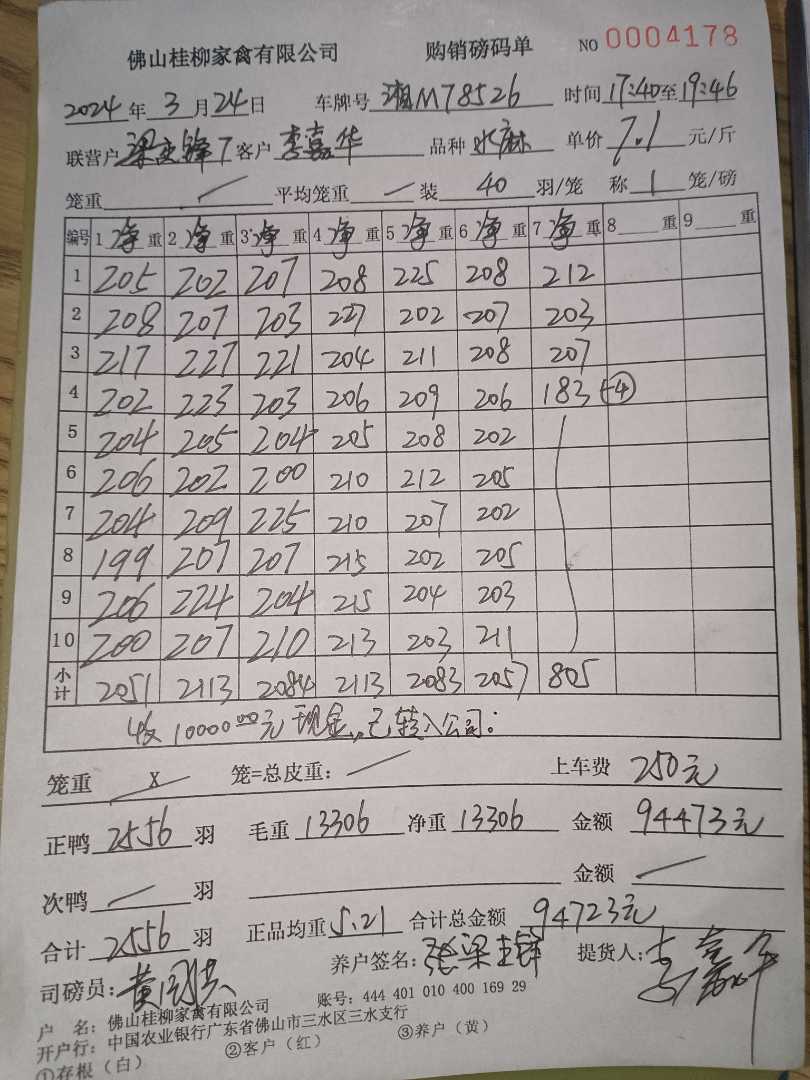 佛山桂柳家禽有限公司 购销磅码单 NO 0004178
2024年3月24日 车牌号 湘M78526 时间 17:40至19:46
联营户 梁 锋 客户 李嘉华 品种 水麻 单价 7.1 元/斤
笼重 平均笼重 装 40 羽/笼 称 1 笼/磅
编号 1 净 重 2 净 重 3 净 重 4 净 重 5 净 重 6 净 重 7 净 重 8 重 9 重
1 205 202 207 208 225 208 212
2 208 207 203 227 202 207 203
3 217 227 221 204 211 208 207
4 202 223 203 206 209 206 183 -4
5 204 205 204 205 208 202
6 206 202 200 210 212 205
7 204 209 225 210 207 202
8 199 207 207 215 202 205
9 206 224 204 215 204 203
10 200 207 210 213 203 211
小计 2051 2113 2084 2113 2083 2057 805
收 10000.00元 现金,已转入公司:
笼重 X 笼=总皮重: 上车费 250元
正鸭 2556 羽 毛重 13306 净重 13306 金额 94473元
次鸭 羽 金额
合计 2556 羽 正品均重 5.21 合计总金额 94723元
司磅员: 黄 养户签名: 张梁 锋 提货人: 李嘉华
户 名: 佛山桂柳家禽有限公司 账号: 444 401 010 400 169 29
开户行: 中国农业银行广东省佛山市三水区三水支行
①存根(白) ②客户(红) ③养户(黄)